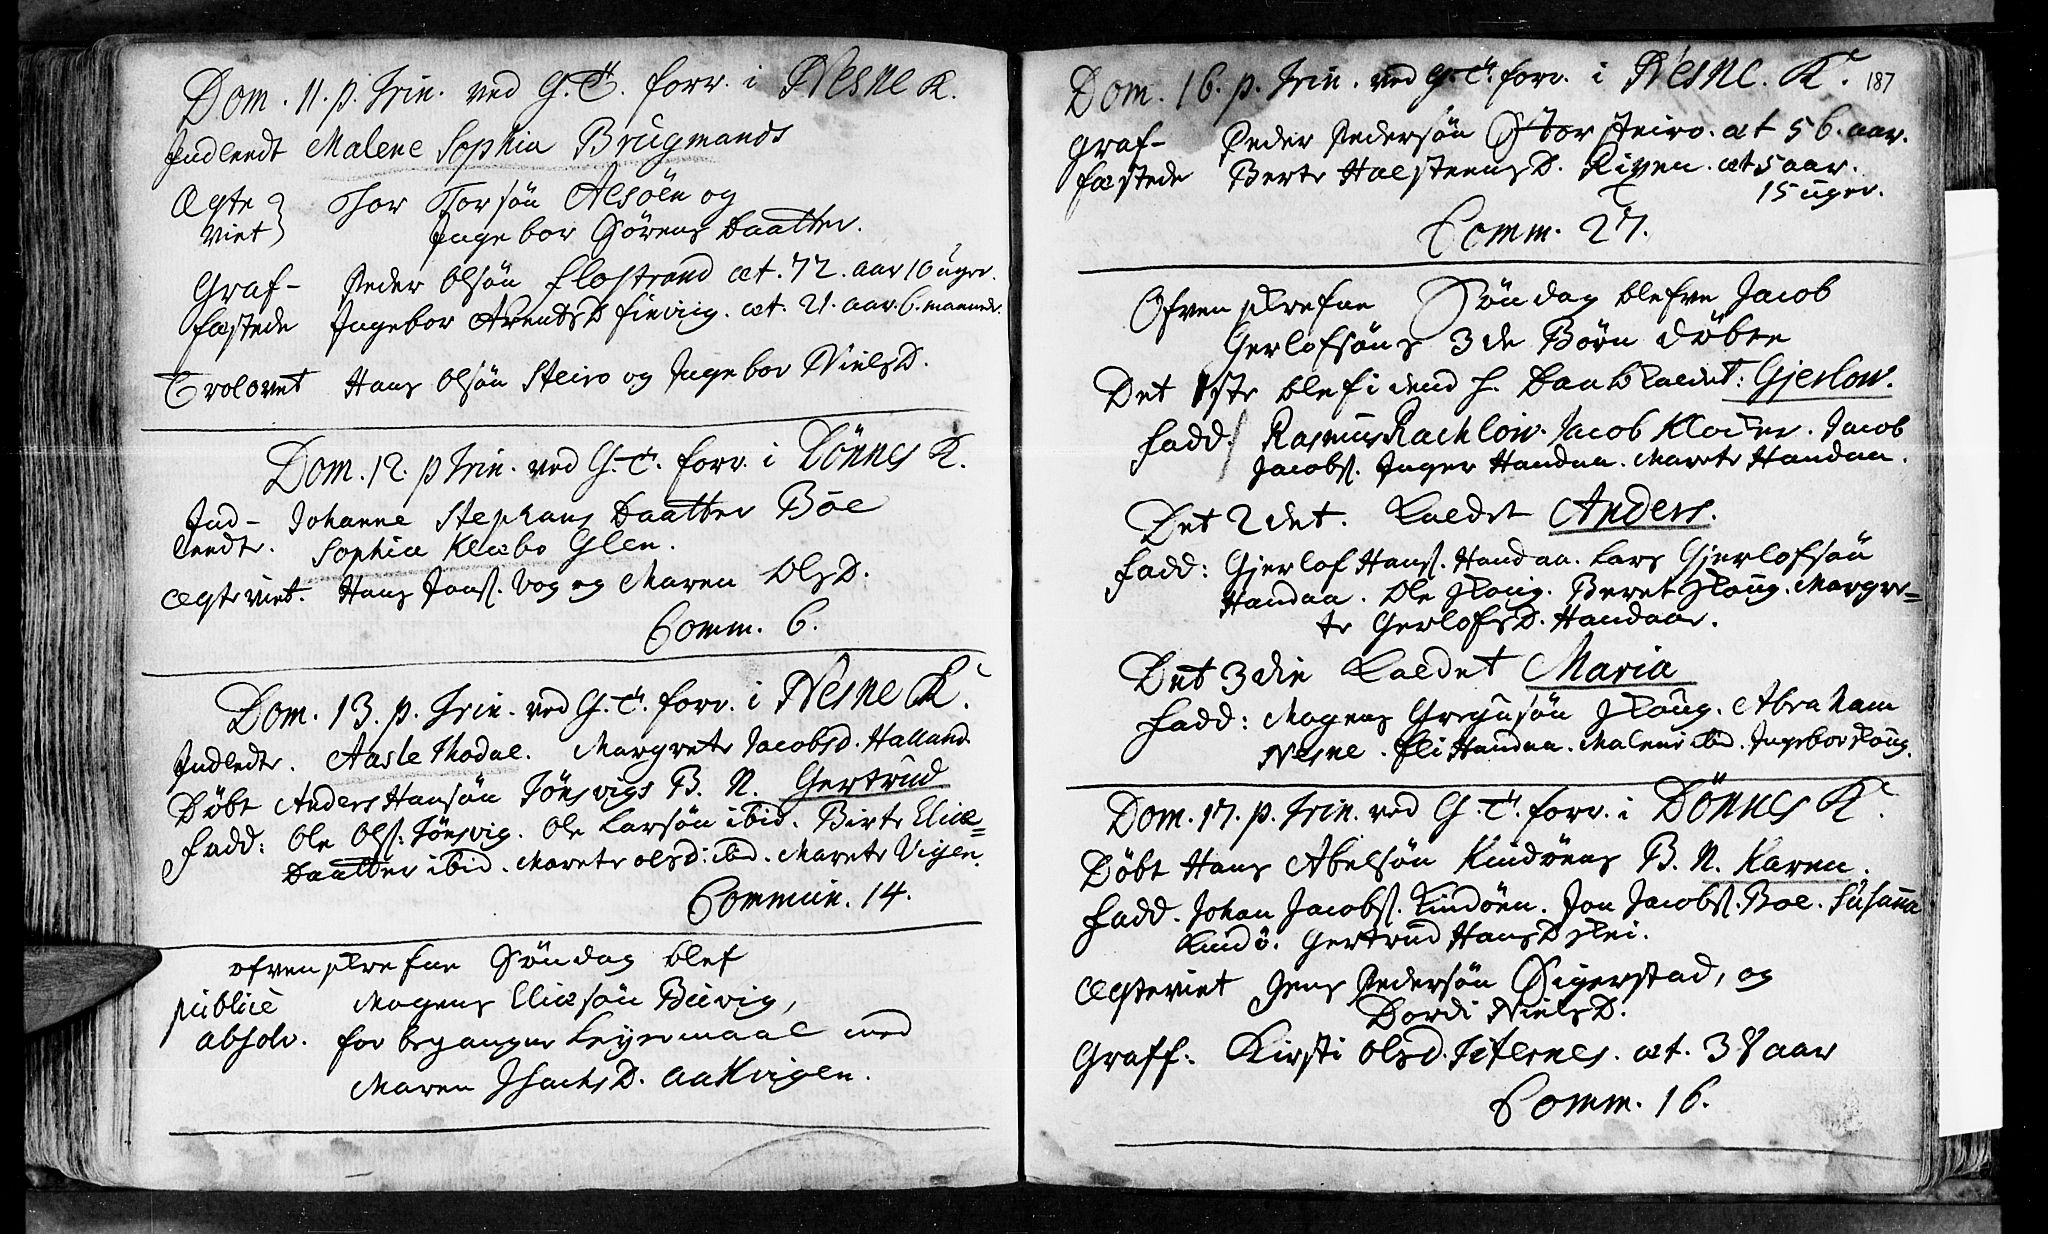 Dom. 11. p. Trin. ved G. T. forr. i Nesne K.
Indleedt Malene Sophia Brugmands
Ægte viet} Thor Torsøn Alsöen og
Ingebor Sörens Daatter.
Graf- Peder Olsøn Flostrand æt. 72. aar 10 uger.
fæstede Ingebor ArentsD finviig. æt. 21. aar. 6. maaneder.
Trolovet Hans Olsøn Steiro og Ingebor NielsD.
Dom. 12. p Trin. ved G. T. forr. i Dönnes K.
Ind- Johanne Stephans Daatter Böe
leedte. Sophia Klæbo Glen.
Ægte viet. Hans Jons. Vog og Maren OlsD.
Comm. 6.
Dom. 13. p. Trin. ved G. T. forr. i Nesne K.
Indledte. Aasle Thodal. Margrete Jacobsd. Halland.
Döbt Anders Hansøn Tönsvigs B. N. Gertrud
Fadd: Ole Ols. Tönsvig. Ole Larsøn ibid. Birte Eliæ=
Daatter ibid. Marete olsd: ibid. Marete Vigen.
Commun. 14.
ofvenskrefne Söndag blef
publicè Mogens Eliæsøn Buvig,
absolv. for begangne Leyermaal med
Maren IsachsD. Aakvigen.
187
Dom. 16. p. Trin. ved G. T. forr. i Nesne. K.
Graf- Peder Pedersøn Stor steiro. æt 56. aar.
fæstede Berte HalsteensD. Rigen. æt 5 aar.
15 uger.
Comm. 27.
Ofvenskrefne Söndag blefve Jacob
Gerlofsøns 3de Börn döbte
Det 1ste blef i dend h. Daab kaldet: Gjerlow.
Fadd: Rasmus Rachlow. Jacob Klocker. Jacob
Jacobs. Inger Handaa. Marete Handaa.
Det 2det. Kaldet Anders.
Fadd: Gjerlof Hans. Handaa. Lars Gjerlofsøn
Handaa. Ole skoug. Beret skoug. Margre=
te GerlofsD. Handaae.
Det 3die Kaldet Maria
Fadd: Mogens Gregusøn skoug. Abraham
Nesne. Eli Handaa. Malene ibid. Ingebor skoug.
Dom. 17. p. Trin. ved G. T. forr. i Dönnes K.
Döbt Hans Abelsøn Kindöens B. N. Karen.
Fadd. Johan Jacobs. Kindöen. Jon Jacobs. Boe. Susanna
Kindö. Gertrud HansD skei.
Ægteviet Jens Pedersøn Sigerstad, og
Dordi NielsD.
Graff. Kirsti Olsd. Titternes. æt. 38 aar
Comm. 16.